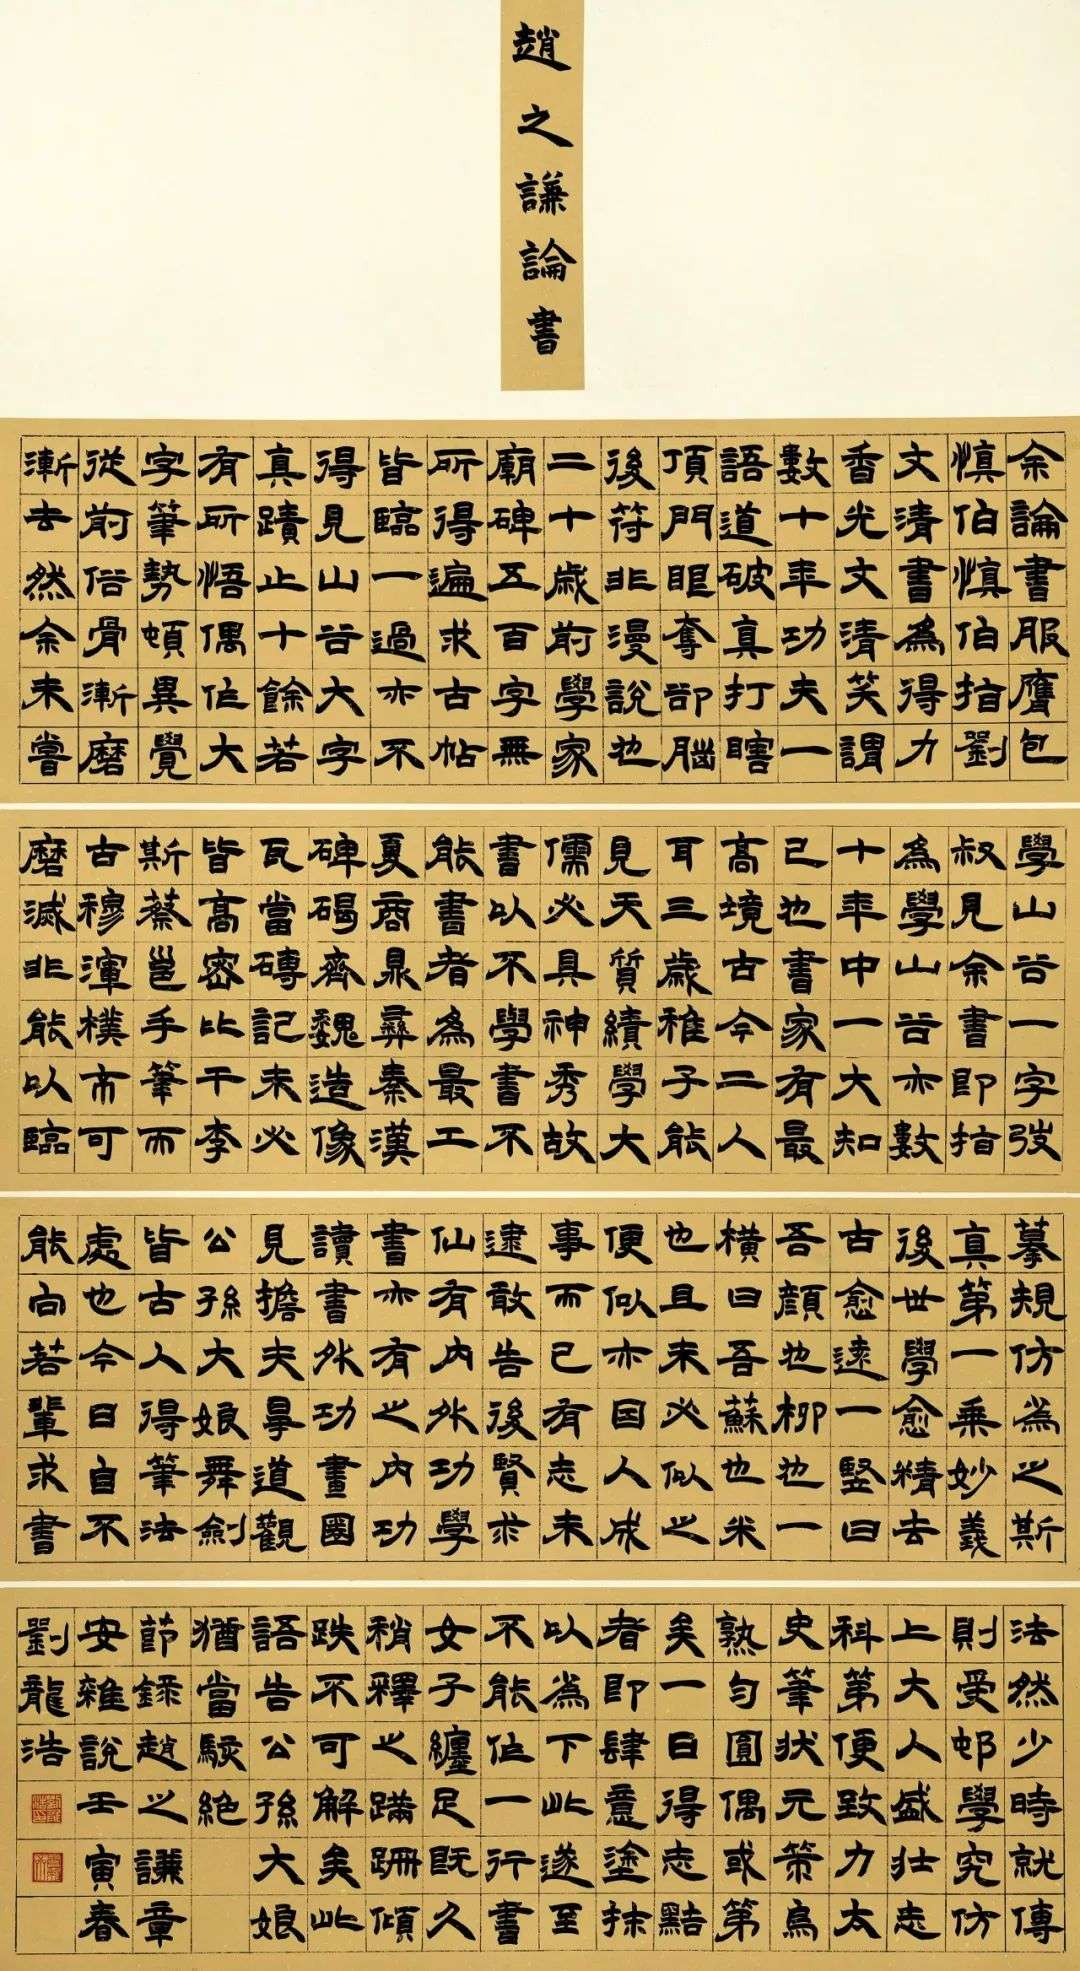 趙之謙論書
余論書服膺包
慎伯慎伯指劉
文清書為得力
香光文清笑謂
數十年功夫一
語道破真打瞎
頂門眼奪卻腦
後符非漫說也
二十歲前學家
廟碑五百字無
所得遍求古帖
皆臨一過亦不
得見山谷大字
真蹟止十餘若
有所悟偶作大
字筆勢頓異覺
從前俗骨漸磨
漸去然余未嘗
學山谷一字弢
叔見余書即指
為學山谷亦數
十年中一大知
己也書家有最
高境古今二人
耳三歲稚子能
見天質績學大
儒必具神秀故
書以不學書不
能書者為最工
夏商鼎彝秦漢
碑碣齊魏造像
瓦當磚記未必
皆高密比干李
斯蔡邕手筆而
古穆渾樸不可
磨滅非能以臨
摹規仿為之斯
真第一乘妙義
後世學愈精去
古愈遠一竪曰
吾顏也柳也一
橫曰吾蘇也米
也且未必似之
便似亦因人成
事而已有志未
逮敢告後賢求
仙有內外功學
書亦有之內功
讀書外功畫圈
見擔夫爭道觀
公孫大娘舞劍
皆古人得筆法
處也今日自不
能向若輩求書
法然少時就傳
則受邨學究仿
上大人盛壯志
科第便致力太
史筆狀元策烏
熟勻圓偶或第
矣一日得志黠
者即肆意塗抹
以為下此遂至
不能作一行書
女子纏足既久
稍釋之蹣跚傾
跌不可解矣此
語告公孫大娘
猶當駭絕
節錄趙之謙章
安雜說壬寅春
劉龍浩